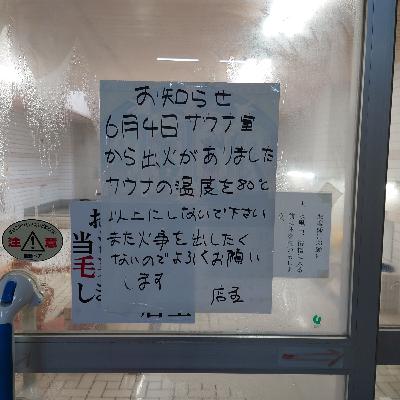 お知らせ
6月4日サウナ室
から出火がありました
サウナの温度を80℃
以上にしないで下さい
また火事を出したく
ないのでよろしくお願い
します
店主
注意
当
毛
し